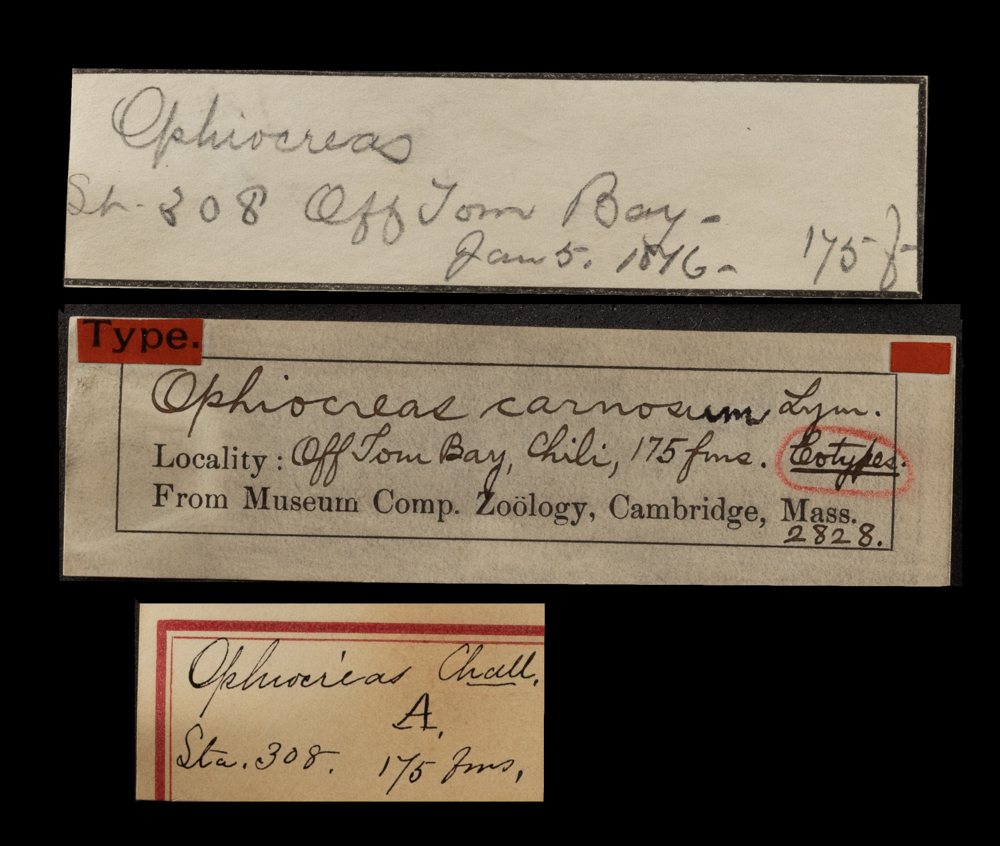 Ophiocreas
St. 308 Off Tom Bay -
Jan 5. 1876 - 175 f -
Type.
Ophiocreas carnosum Lym.
Locality : Off Tom Bay, Chili, 175 fms. Cotypes.
From Museum Comp. Zoölogy, Cambridge, Mass.
2828.
Ophiocreas Chall.
A.
Sta. 308. 175 fms,